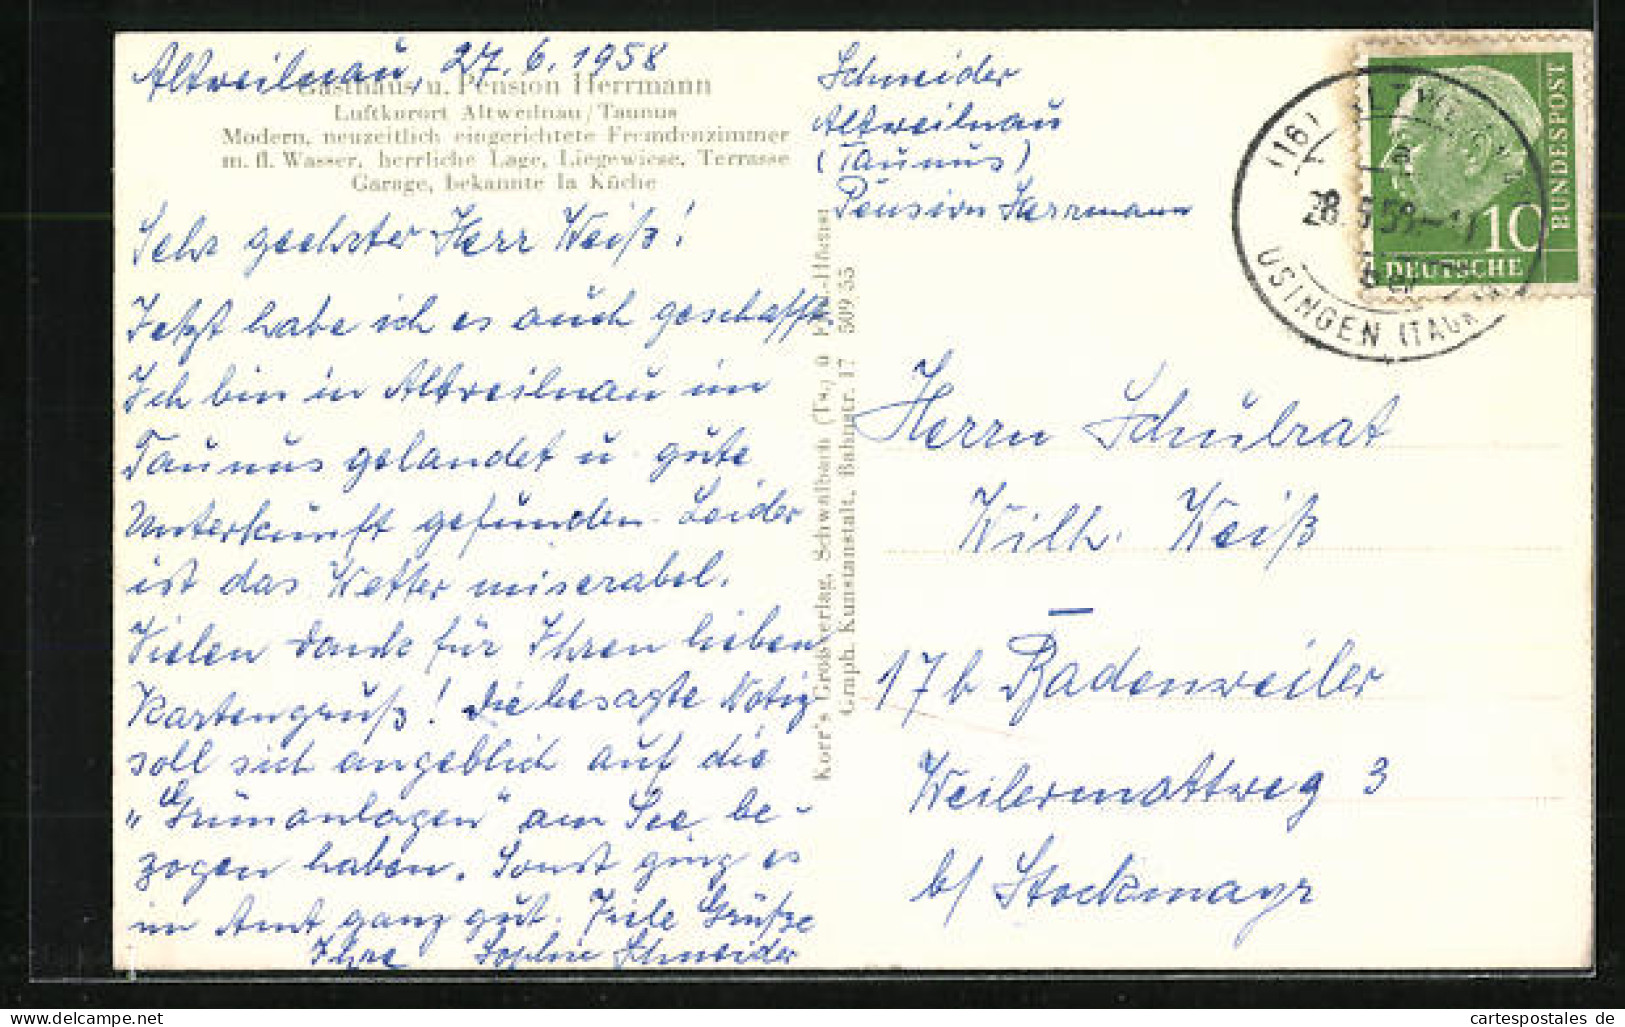 Altweilnau, 27. 6. 1958
Gasthaus u. Pension Herrmann
Luftkurort Altweilnau/Taunus
Modern, neuzeitlich eingerichtete Fremdenzimmer
m. fl. Wasser, herrliche Lage, Liegewiese, Terrasse
Garage, bekannte la Küche
Sehr geehrter Herr Weiß!
Jetzt habe ich es auch geschafft.
Ich bin in Altweilnau im
Taunus gelandet u. gute
Unterkunft gefunden. Leider
ist das Wetter miserabel.
Vielen Dank für Ihren lieben
Kartengruß! Die besagte Notiz
soll sich angeblich auf die
"Grünanlagen" am See be-
zogen haben. Sonst ging es
im Amt ganz gut. Viele Grüße
Ihre Sophie Schneider
Korr's Großverlag, Schwalbach (Ts.)
Graph. Kunstanstalt, Bahnstr. 17 509/55
Schneider
Altweilnau
(Taunus)
Pension Herrmann
(16)
USINGEN (TAUNUS)
10
DEUTSCHE
BUNDESPOST
Herrn Schulrat
Wilh. Weiß
17b Badenweiler
Weilermattweg 3
b/ Stockmayr
cartespostales de